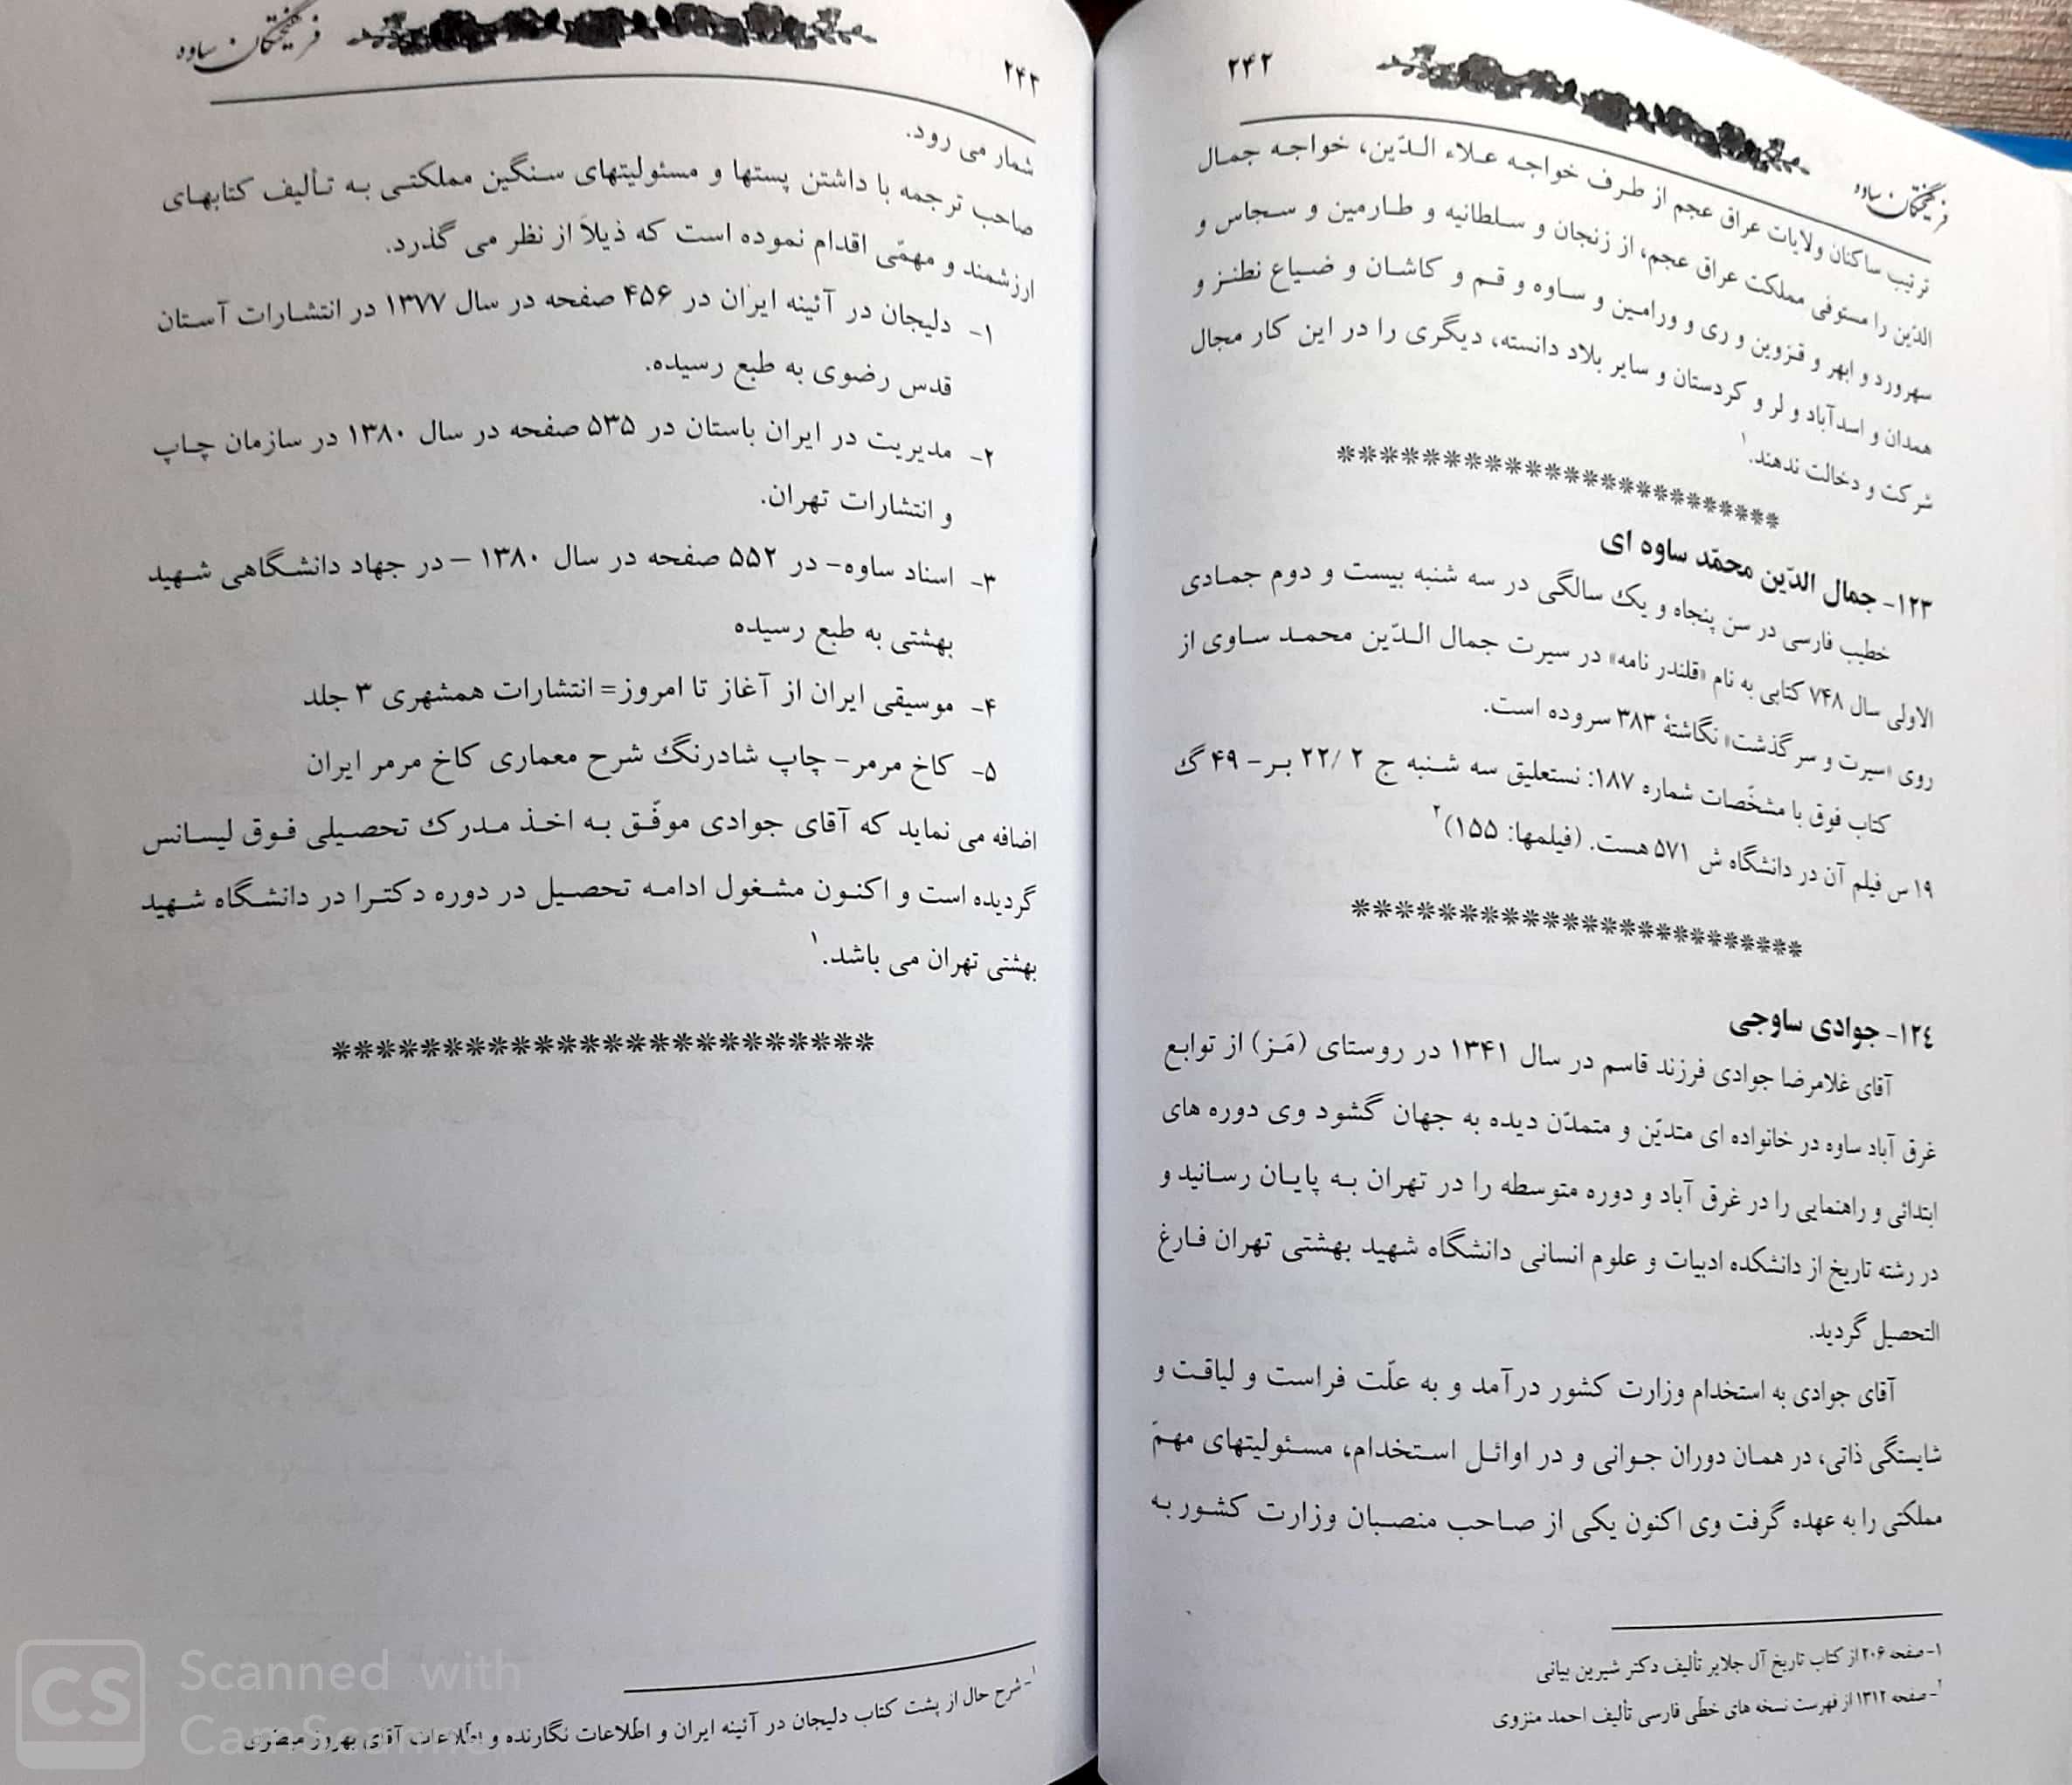 ۲۴۲
فرهیختگان ساوه
ترتیب ساکنان ولایات عراق عجم از طرف خواجه علاء الدّین، خواجه جمال
الدّین را مستوفی مملکت عراق عجم، از زنجان و سلطانیه و طارمین و سجاس و
سهرورد و ابهر و قزوین و ری و ورامین و ساوه و قم و کاشان و ضیاع نطنز و
همدان و اسدآباد و لر و کردستان و سایر بلاد دانسته، دیگری را در این کار مجال
شرکت و دخالت ندهند.۱
**********************
۱۲۳- جمال الدّین محمّد ساوه ای
خطیب فارسی در سن پنجاه و یک سالگی در سه شنبه بیست و دوم جمادی
الاولی سال ۷۴۸ کتابی به نام «قلندر نامه» در سیرت جمال الدّین محمد ساوی از
روی «سیرت و سرگذشت» نگاشتهٔ ۳۸۳ سروده است.
کتاب فوق با مشخّصات شماره ۱۸۷: نستعلیق سه شنبه ج ۲ /۲۲ بر- ۴۹ گ
۱۹ س فیلم آن در دانشگاه ش ۵۷۱ هست. (فیلمها: ۱۵۵)۲
**********************
۱۲۴- جوادی ساوجی
آقای غلامرضا جوادی فرزند قاسم در سال ۱۳۴۱ در روستای (مَز) از توابع
غرق آباد ساوه در خانواده ای متدیّن و متمدّن دیده به جهان گشود وی دوره های
ابتدائی و راهنمایی را در غرق آباد و دوره متوسطه را در تهران به پایان رسانید و
در رشته تاریخ از دانشکده ادبیات و علوم انسانی دانشگاه شهید بهشتی تهران فارغ
التحصیل گردید.
آقای جوادی به استخدام وزارت کشور درآمد و به علّت فراست و لیاقت و
شایستگی ذاتی، در همان دوران جوانی و در اوائل استخدام، مسئولیتهای مهمّ
مملکتی را به عهده گرفت وی اکنون یکی از صاحب منصبان وزارت کشور به
۱- صفحه ۲۰۶ از کتاب تاریخ آل جلایر تألیف دکتر شیرین بیانی
۲- صفحه ۱۳۱۲ از فهرست نسخه های خطّی فارسی تألیف احمد منزوی
۲۴۳
فرهیختگان ساوه
شمار می رود.
صاحب ترجمه با داشتن پستها و مسئولیتهای سنگین مملکتی به تألیف کتابهای
ارزشمند و مهمّی اقدام نموده است که ذیلاً از نظر می گذرد.
۱- دلیجان در آئینه ایران در ۴۵۶ صفحه در سال ۱۳۷۷ در انتشارات آستان
قدس رضوی به طبع رسیده.
۲- مدیریت در ایران باستان در ۵۳۵ صفحه در سال ۱۳۸۰ در سازمان چاپ
و انتشارات تهران.
۳- اسناد ساوه- در ۵۵۲ صفحه در سال ۱۳۸۰ – در جهاد دانشگاهی شهید
بهشتی به طبع رسیده
۴- موسیقی ایران از آغاز تا امروز= انتشارات همشهری ۳ جلد
۵- کاخ مرمر- چاپ شادرنگ شرح معماری کاخ مرمر ایران
اضافه می نماید که آقای جوادی موفّق به اخذ مدرک تحصیلی فوق لیسانس
گردیده است و اکنون مشغول ادامه تحصیل در دوره دکترا در دانشگاه شهید
بهشتی تهران می باشد.۱
************************
۱- شرح حال از پشت کتاب دلیجان در آئینه ایران و اطّلاعات نگارنده و اطّلاعات آقای بهروز
CS Scanned with
CamScanner